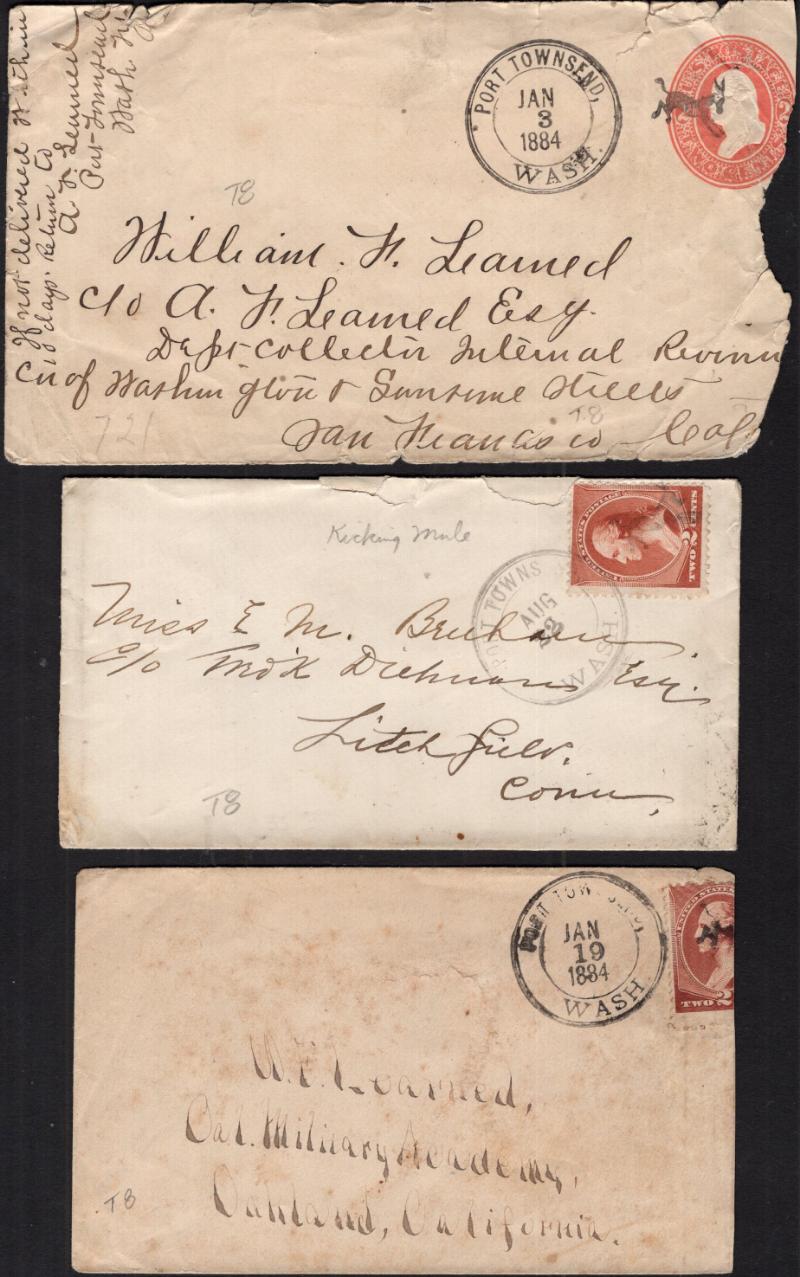 If not delivered within
10 days. Return to
A F Learned
Port Townsend
Wash
PORT TOWNSEND,
JAN
3
1884
WASH.
T8
William. F. Learned
c/o A. F. Learned Esq.
Dept collector Internal
Cn of Washington & Sunsome Streets
San Francisco Cal
T8
721
Kicking Mule
UNITED STATES POSTAGE
TWO 2 CENTS
PORT TOWNS
AUG
WASH
Miss E M.
c/o Esq.
Litchfield.
Conn,
T8
PORT TOWNSEND,
JAN
19
1884
WASH
UNITED STATES
TWO 2
W. F. Learned,
Cal. Military Academy,
Oakland, California.
T8